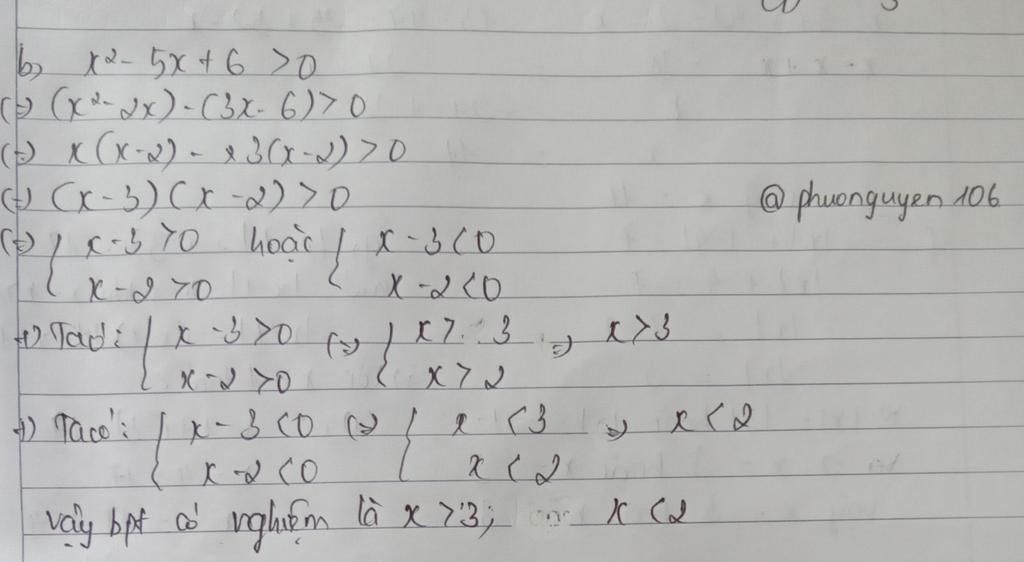 b, x² - 5x + 6 > 0
(=) (x² - 2x) - (3x - 6) > 0
(=) x(x-2) - 3(x-2) > 0
(=) (x-3)(x-2) > 0
@phuonguyen106
(=) { x-3 > 0 hoặc { x-3 < 0
x-2 > 0 x-2 < 0
+) Ta có: { x-3 > 0 (=) { x > 3 => x > 3
x-2 > 0 x > 2
+) Ta có: { x-3 < 0 (=) { x < 3 => x < 2
x-2 < 0 x < 2
vậy bpt có nghiệm là x > 3; x < 2